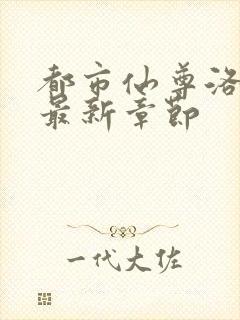 都市仙尊洛
最新章节
一代大佐